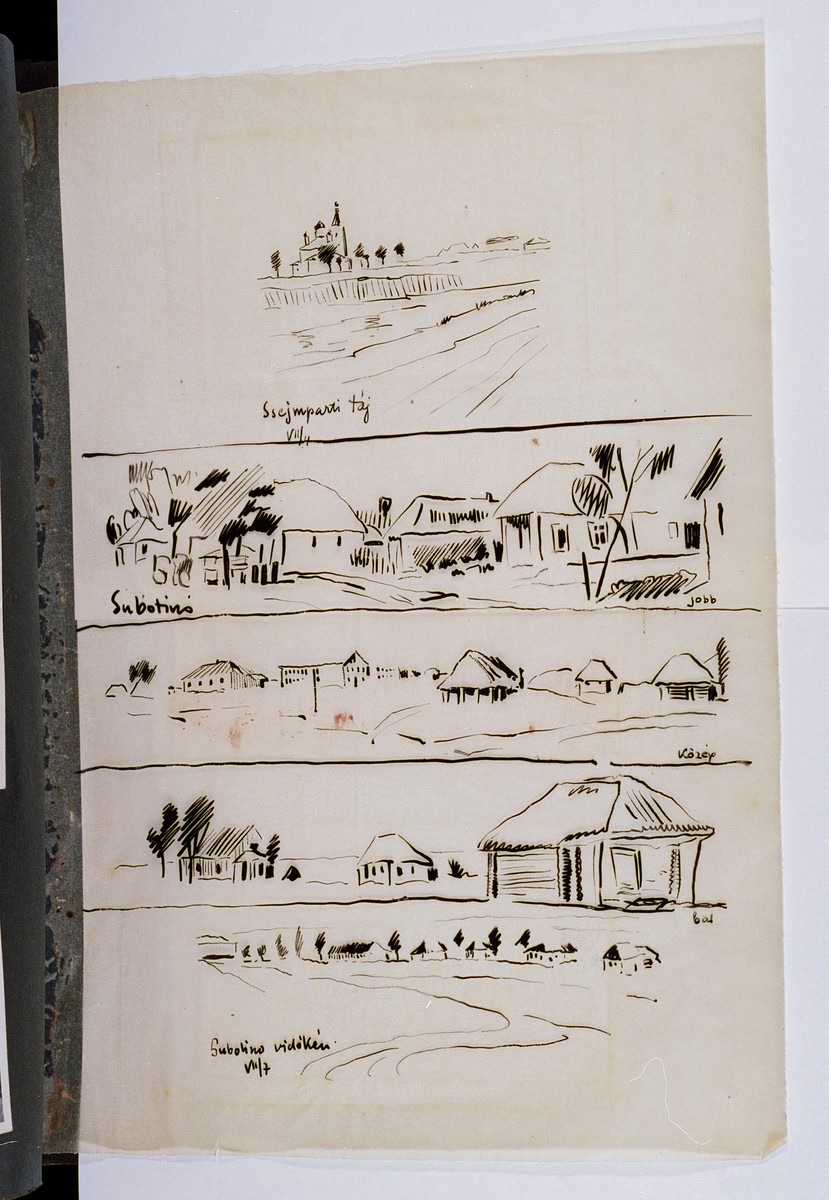 Ssejmparti táj
VII/4
Subotino
jobb
Közép
bal
Subotino vidékén.
VII/7